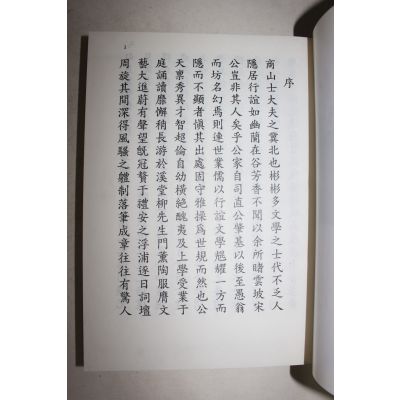 序
商山士大夫之冀北也彬彬多文學之士代不乏人
隱居行誼如幽蘭在谷芳香不聞以余所睹雲坡宋
公豈非其人矣乎公家自司直公肇基以後至愚翁
而坊名幻焉則連世業儒以行誼文學魁耀一方而
隱而不顯者愼其出處固守雅操爲世規而然也公
天禀秀異才智超倫自幼橫絶醜夷及上學受業于
庭誦讀靡懈稍長游於溪堂柳先生門薰陶服膺文
藝大進蔚有聲望旣冠贅于禮安之浮浦逐日詞壇
周旋其間深得風騷之軆制落筆成章往往有驚人
1